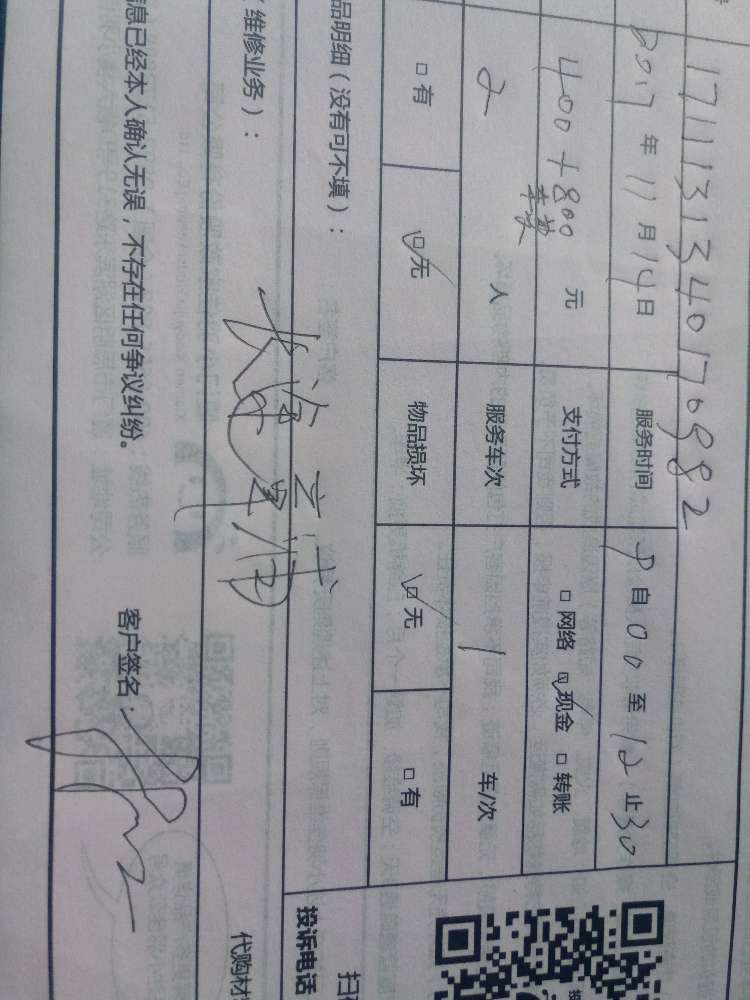 1711131340170982
2017 年 11 月 14 日 服务时间 9 自 00 至 12 止 30
400+800 元 支付方式 □ 网络 ☑ 现金 □ 转账
2 人 服务车次 1 车/次
□ 有 ☑ 无 物品损坏 ☑ 无 □ 有
品明细（没有可不填）：
扫
投诉电话
（维修业务）：
代购材
息已经本人确认无误，不存在任何争议纠纷。 客户签名：